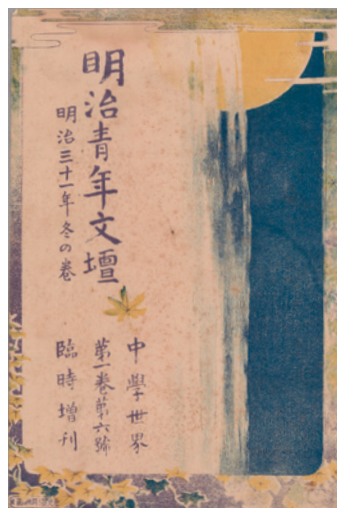 明治青年文壇
明治三十一年冬の巻
中學世界
第一巻第六號
臨時増刊